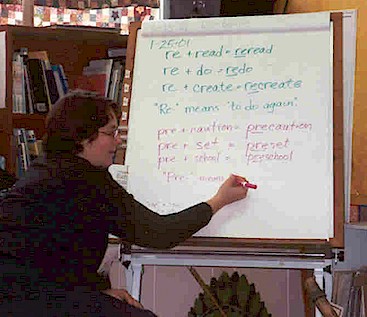 1-25-01
re + read = reread
re + do = redo
re + create = recreate
"Re" means "to do again"
pre + caution = precaution
pre + set = preset
pre + school = preschool
"Pre" means